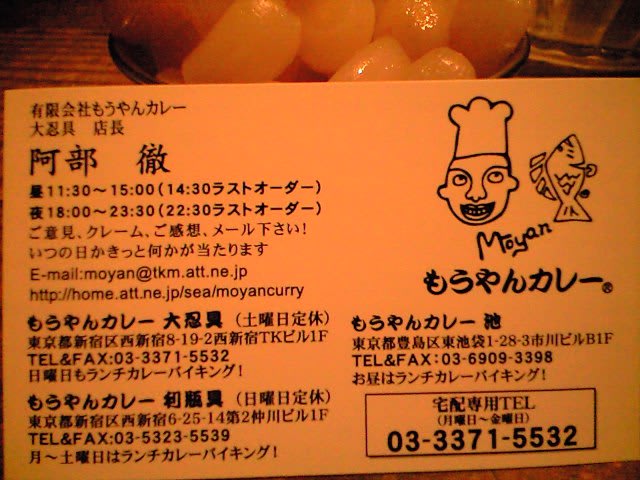 有限会社もうやんカレー
大忍具 店長
阿部 徹
昼11:30〜15:00(14:30ラストオーダー)
夜18:00〜23:30(22:30ラストオーダー)
ご意見、クレーム、ご感想、メール下さい!
いつの日かきっと何かが当たります
E-mail:moyan@tkm.att.ne.jp
http://home.att.ne.jp/sea/moyancurry
Moyan
もうやんカレー®
もうやんカレー 大忍具 (土曜日定休)
東京都新宿区西新宿8-19-2西新宿TKビル1F
TEL&FAX:03-3371-5532
日曜日もランチカレーバイキング!
もうやんカレー 利瓶具 (日曜日定休)
東京都新宿区西新宿6-25-14第2仲川ビル1F
TEL&FAX:03-5323-5539
月〜土曜日はランチカレーバイキング!
もうやんカレー 池
東京都豊島区東池袋1-28-3市川ビルB1F
TEL&FAX:03-6909-3398
お昼はランチカレーバイキング!
宅配専用TEL
(月曜日〜金曜日)
03-3371-5532